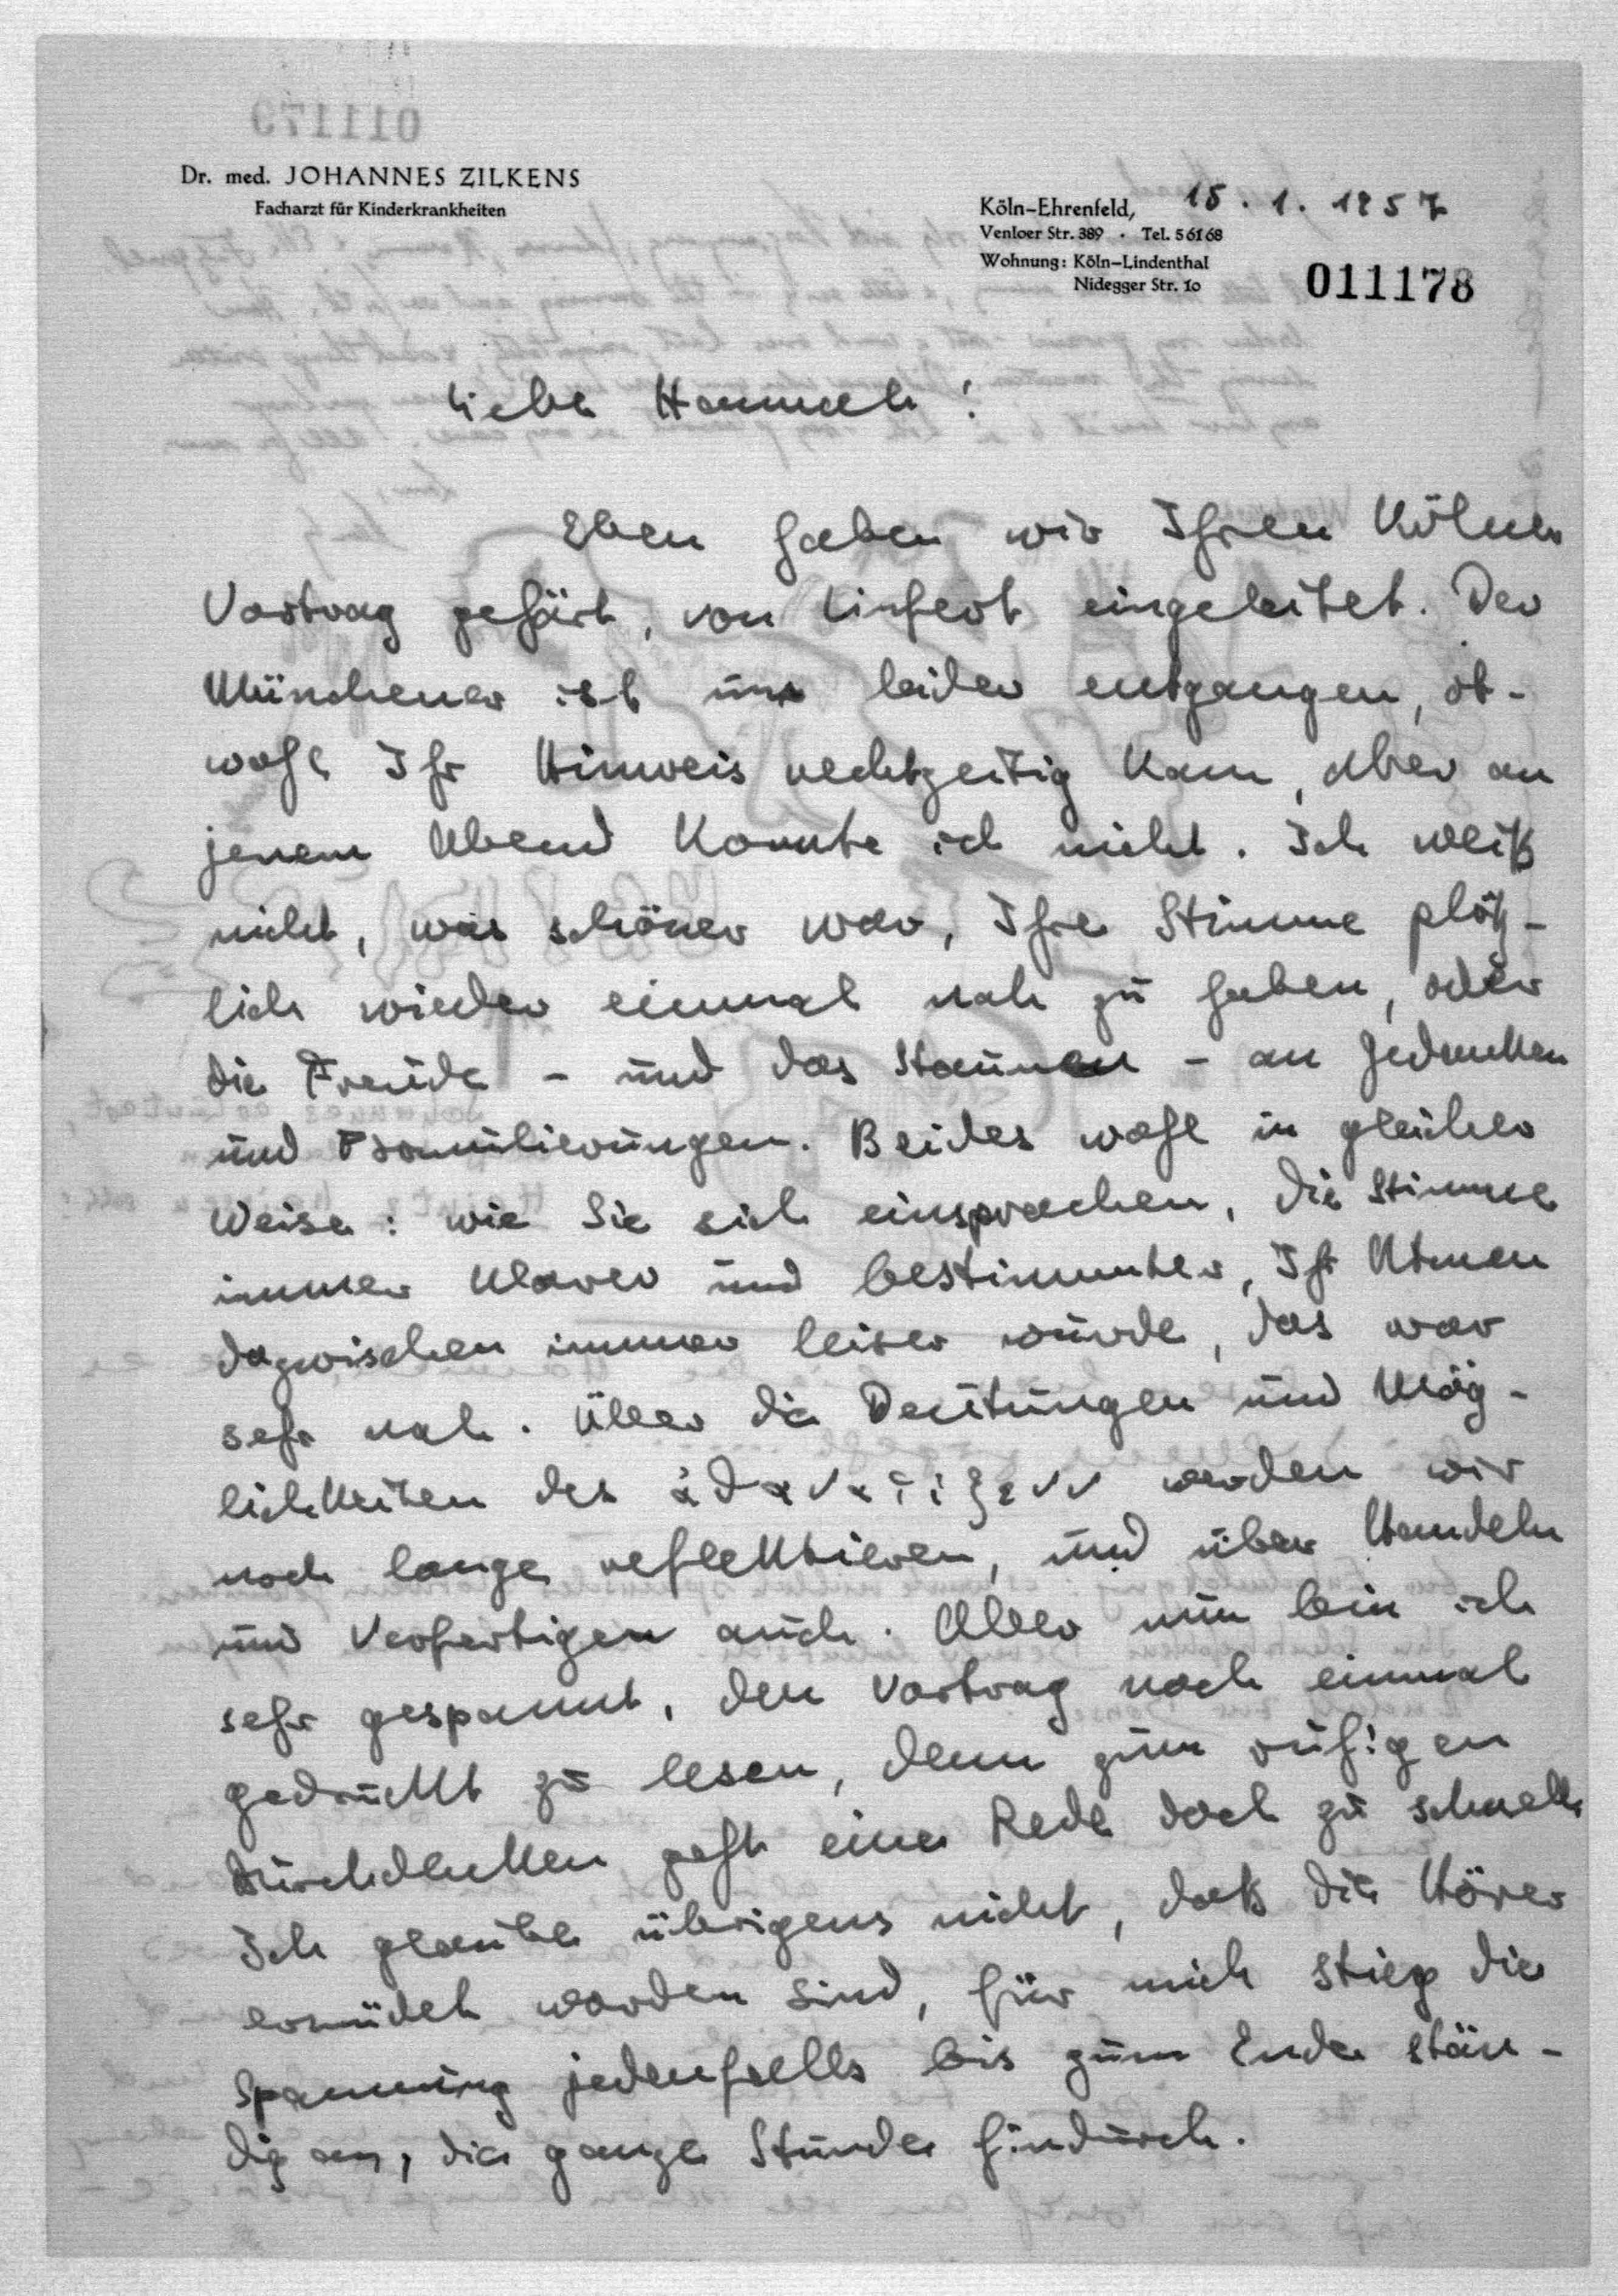 011179
Dr. med. JOHANNES ZILKENS
Facharzt für Kinderkrankheiten
Köln-Ehrenfeld, 15. 1. 1957
Venloer Str. 389 · Tel. 56168
Wohnung: Köln-Lindenthal
Nidegger Str. 10
011178
Liebe Hannah!
Eben haben wir Ihren Kölner
Vortrag gehört, von Linfert eingeleitet. Der
Münchener ist uns leider entgangen, ob-
wohl Ihr Hinweis rechtzeitig kam, aber an
jenem Abend konnte ich nicht. Ich weiß
nicht, was schöner war, Ihre Stimme plötz-
lich wieder einmal nah zu haben, oder
die Freude – und das Staunen – an Gedanken
und Formulierungen. Beides wohl in gleicher
Weise: wie Sie sich einsprachen, die Stimme
immer klarer und bestimmter, Ihr Atmen
dazwischen immer leiser wurde, das war
sehr nah. Über die Deutungen und Mög-
lichkeiten des werden wir
noch lange reflektieren, und über Handeln
und Verfertigen auch. Aber nun bin ich
sehr gespannt, den Vortrag noch einmal
gedruckt zu lesen, denn zum ruhigen
Durchdenken geht eine Rede doch zu schnell.
Ich glaube übrigens nicht, daß die Hörer
ermüdet worden sind, für mich stieg die
Spannung jedenfalls bis zum Ende stän-
dig an, die ganze Stunde hindurch.